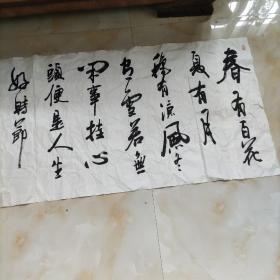 春有百花
夏有月
秋有凉风冬
有雪若无
闲事挂心
头便是人生
好时节